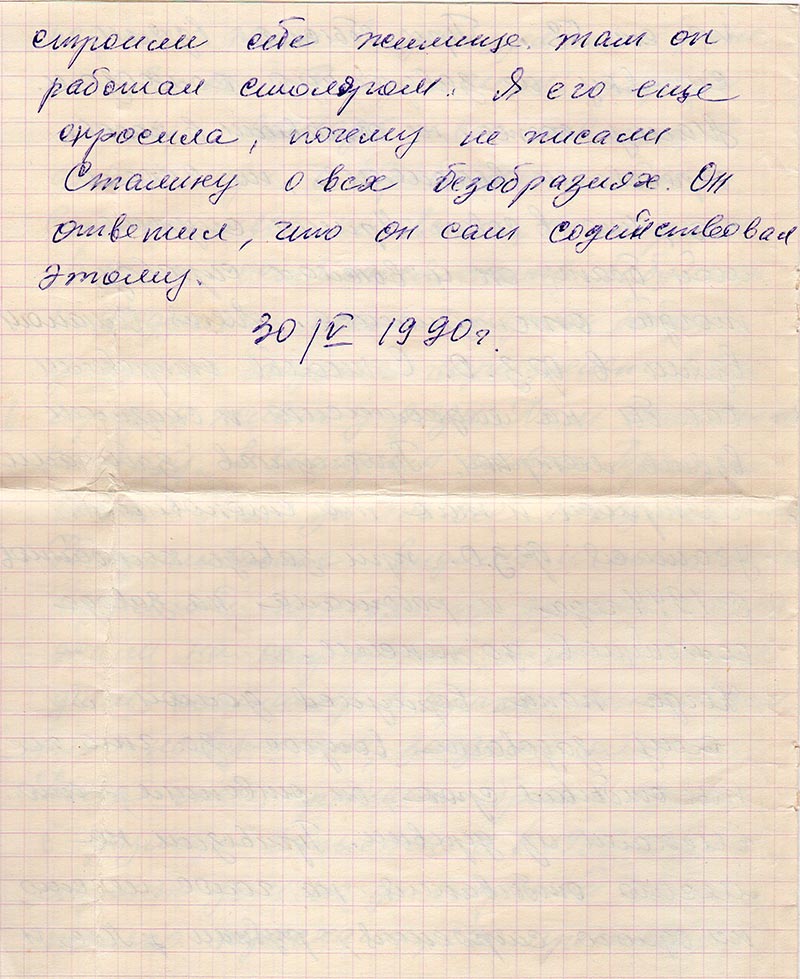 строили себе жилище. там он
работал столяром. Я его еще
спросила, почему не писали
Сталину о всх безобразиях. Он
ответил, что он сам содействовал
этому.
30/V 1990г.